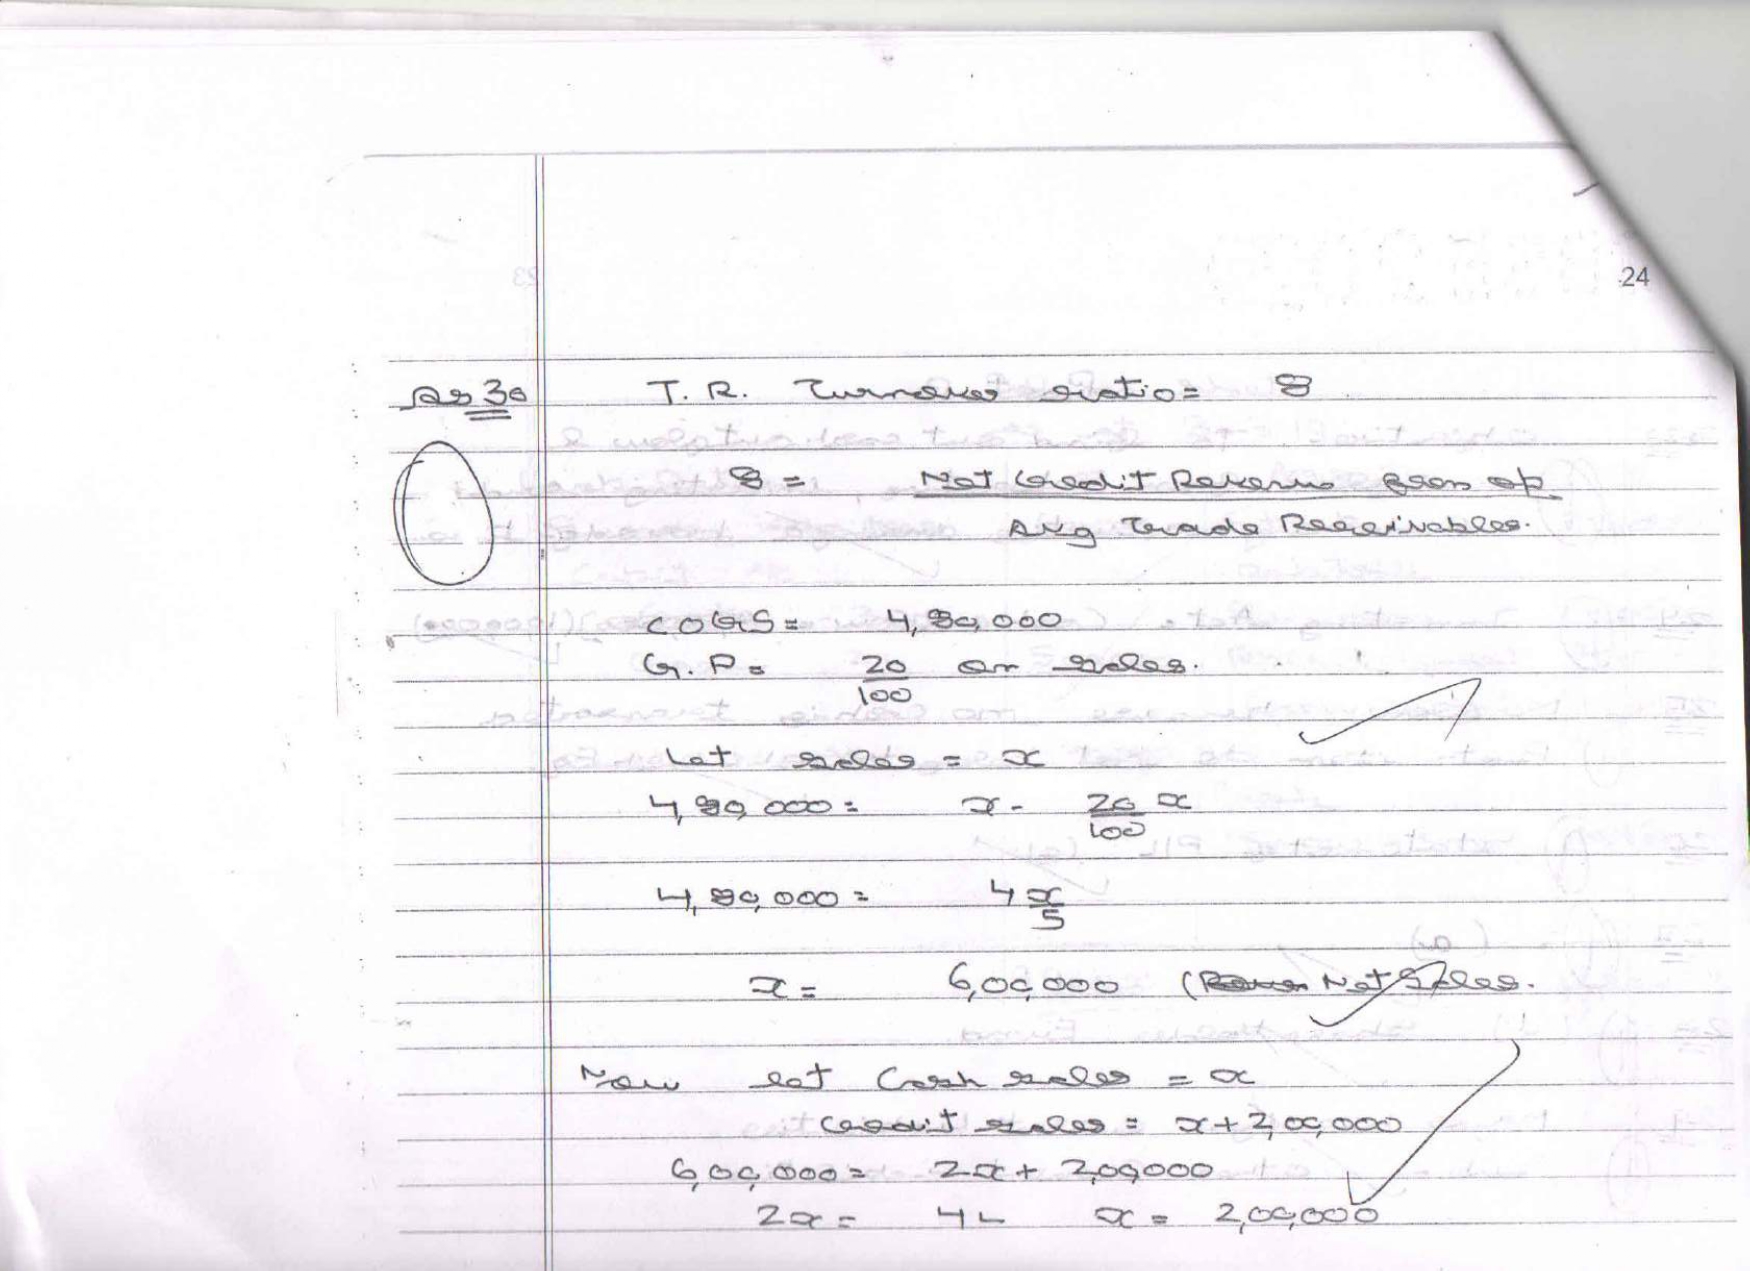 24
Ans 30 T. R. Turnover ratio = 8
8 = Net Credit Revenue from op
Avg Trade Receivables.
COGS = 4,80,000
G.P = 20/100 on sales.
Let sales = x
4,80,000 = x - 20/100 x
4,80,000 = 4x/5
x = 6,00,000 (Net Sales.
Now let Cash sales = x
credit sales = x + 2,00,000
6,00,000 = 2x + 2,00,000
2x = 4L x = 2,00,000